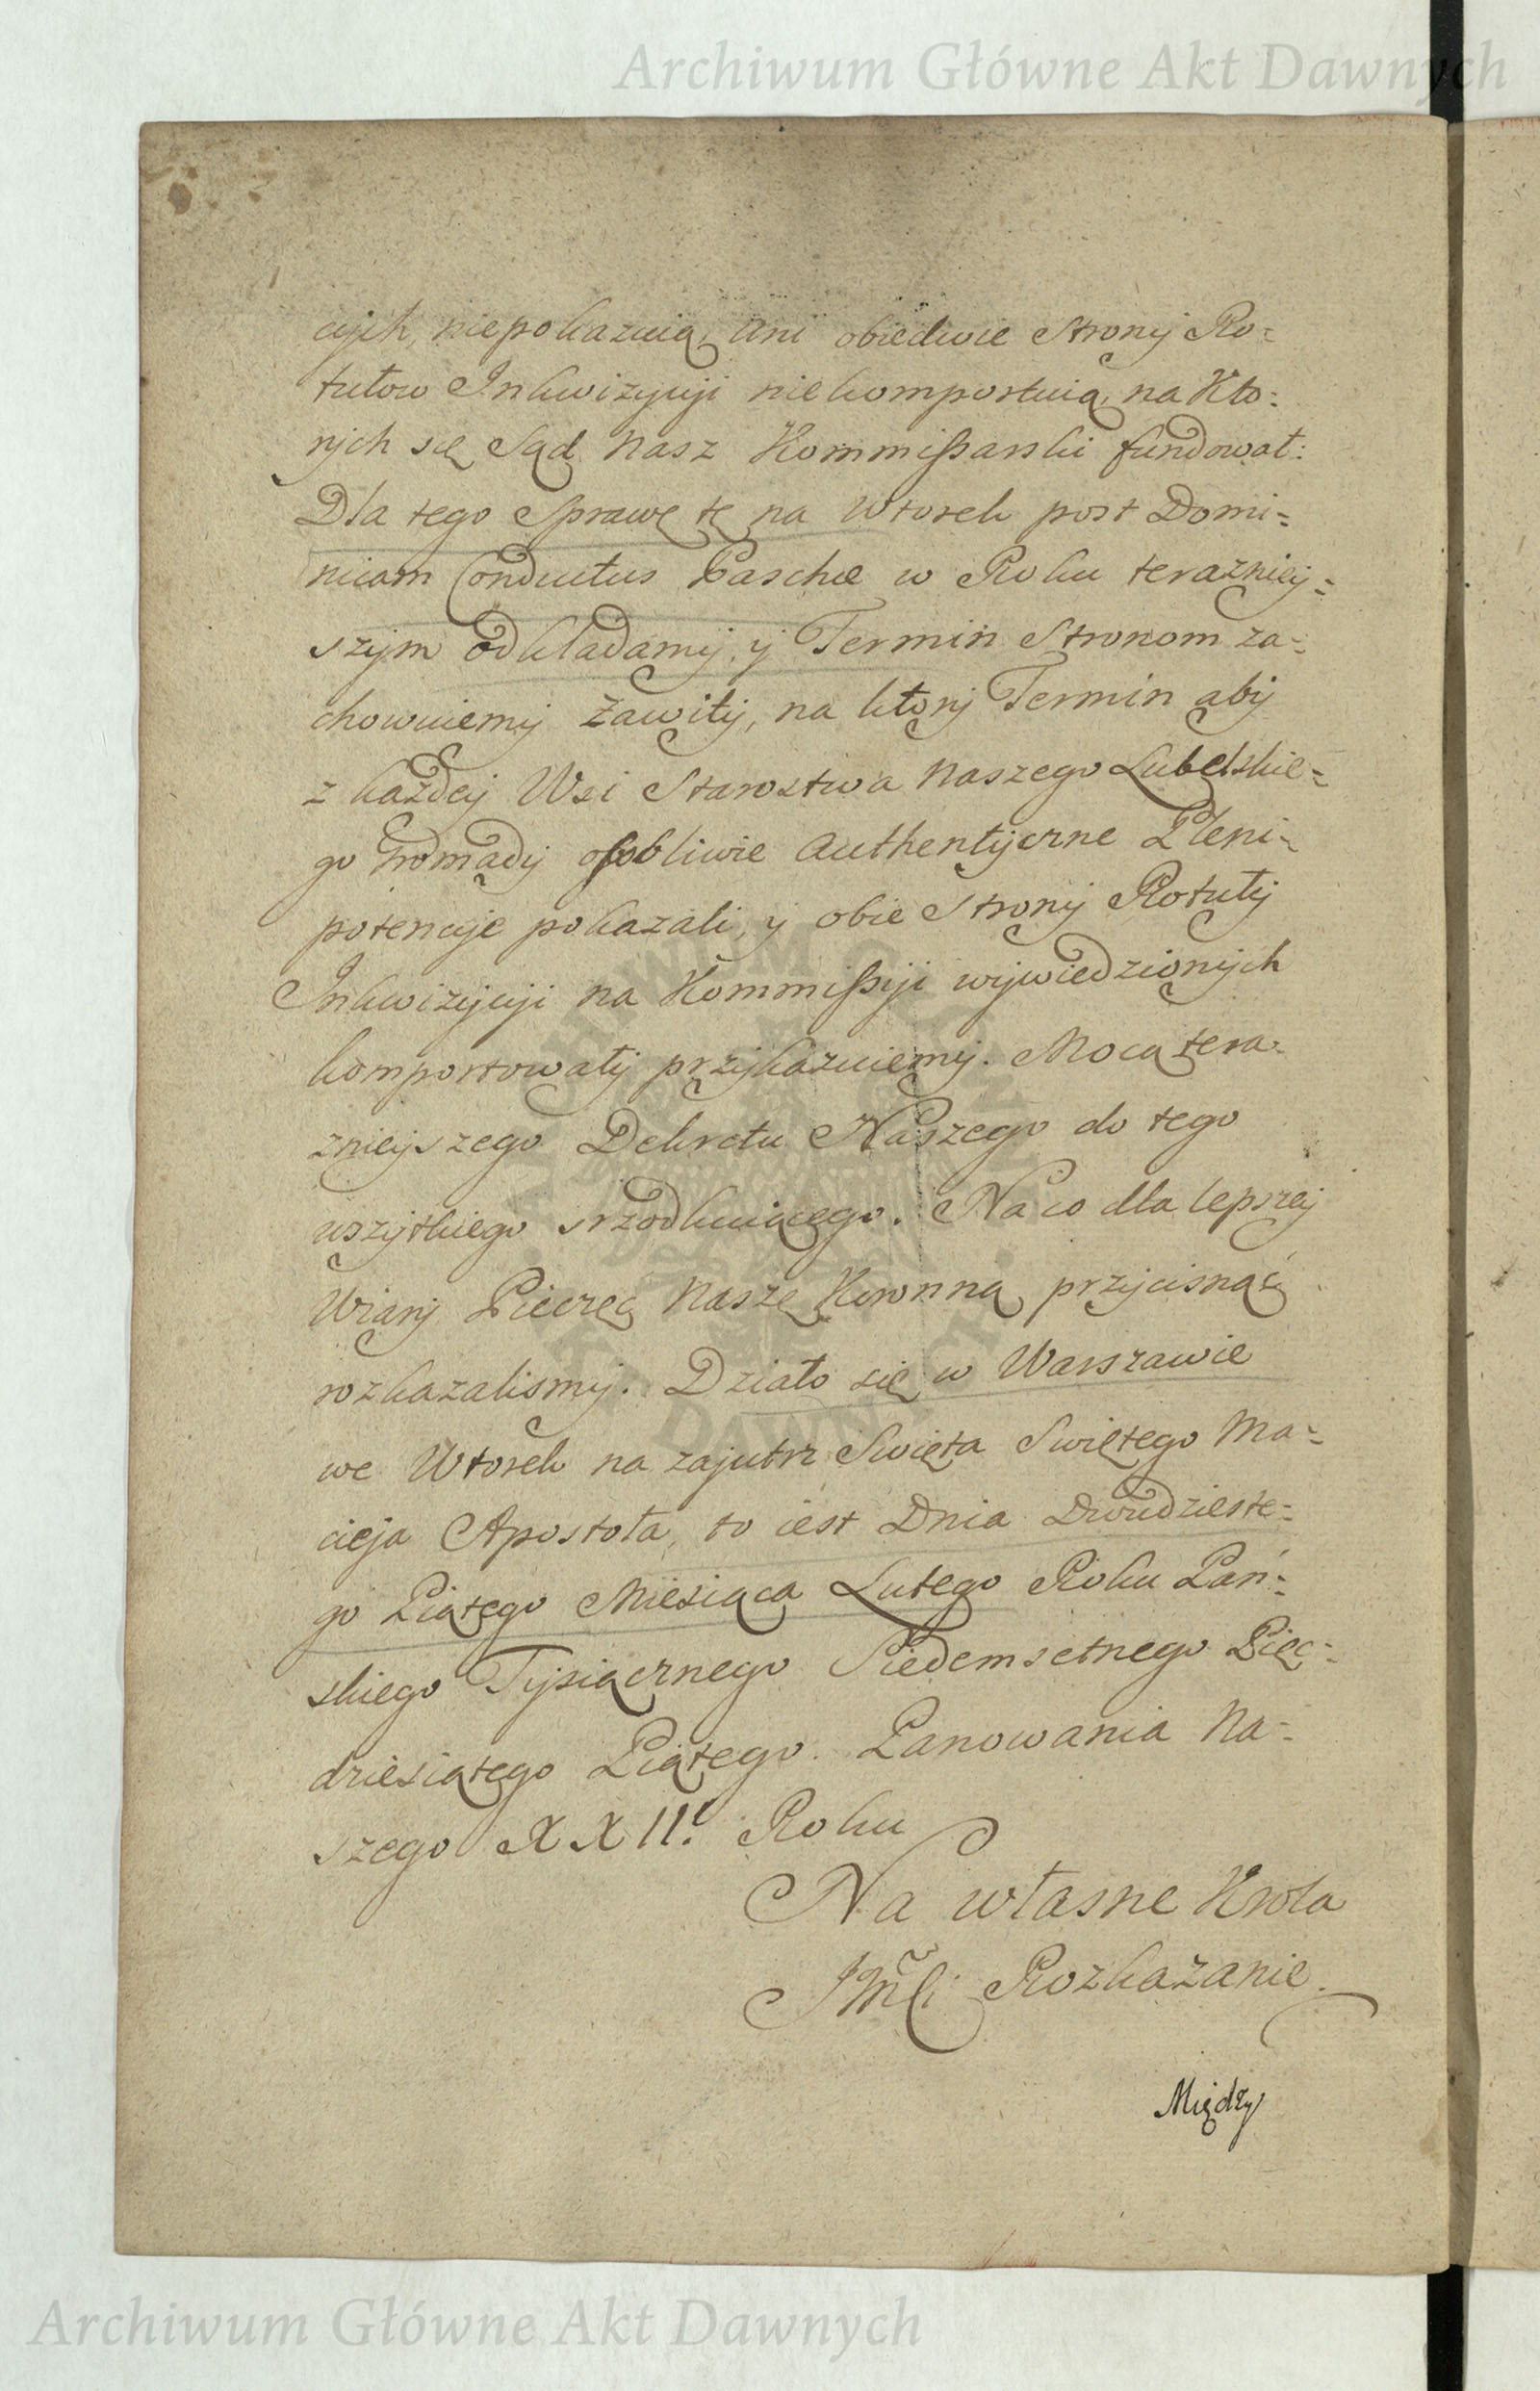 Archiwum Główne Akt Dawnych
cyich, niepokazuią, ani obiedwie Strony Ro=
tułow Inkwizycyi niekomportuią, na Kto=
rych się Sąd Nasz Kommißarski fundował:
Dla tego Sprawę tę na Wtorek post Domi=
nicam Conductus Paschæ w Roku terazniey=
szym odkładamy, y Termin Stronom za=
chowuiemy Zawity, na ktory Termin aby
z każdey Wsi Starostwa Naszego Lubelskie=
go Gromady oßobliwie Authentyczne Pleni=
potencye pokazali, y obie Strony Rotuły
Inkwizycyi na Kommißyi wywiedzionych
komportowały przykazuiemy. Mocą tera=
znieyszego Dekretu Naszego do tego
wszytkiego srzodkuiącego. Na co dla lepszey
Wiary Pieczęć Naszę Koronną przycisnąć
rozkazalismy. Działo się w Warszawie
we Wtorek na zajutrz Swięta Swiętego Ma=
cieja Apostoła, to iest Dnia Dwudzieste=
go Piątego Miesiąca Lutego Roku Pań=
skiego Tysiącznego Siedemsetnego Pięć=
dziesiątego Piątego. Panowania Na=
szego XXII. Roku
Na własne Krola
JMci Rozkazanie.
Między
Archiwum Główne Akt Dawnych